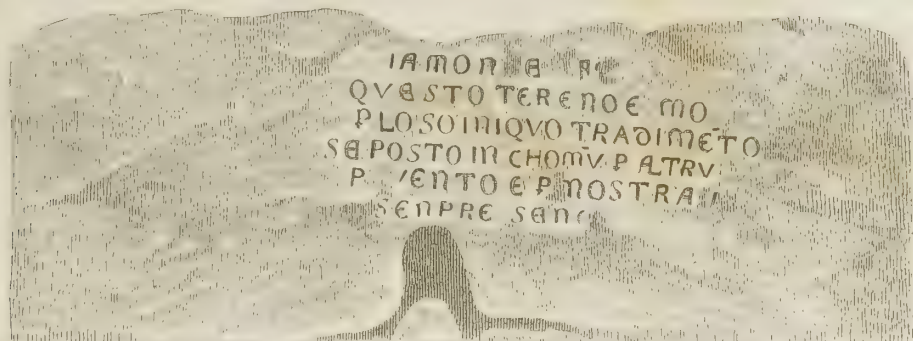 IAMON
QVESTO TERENO E MO
P LO SO INIQVO TRADIMĒTO
SE POSTO IN CHOMV̄ P ALTRV
P VENTO E P MOSTRA
SENPRE SAN